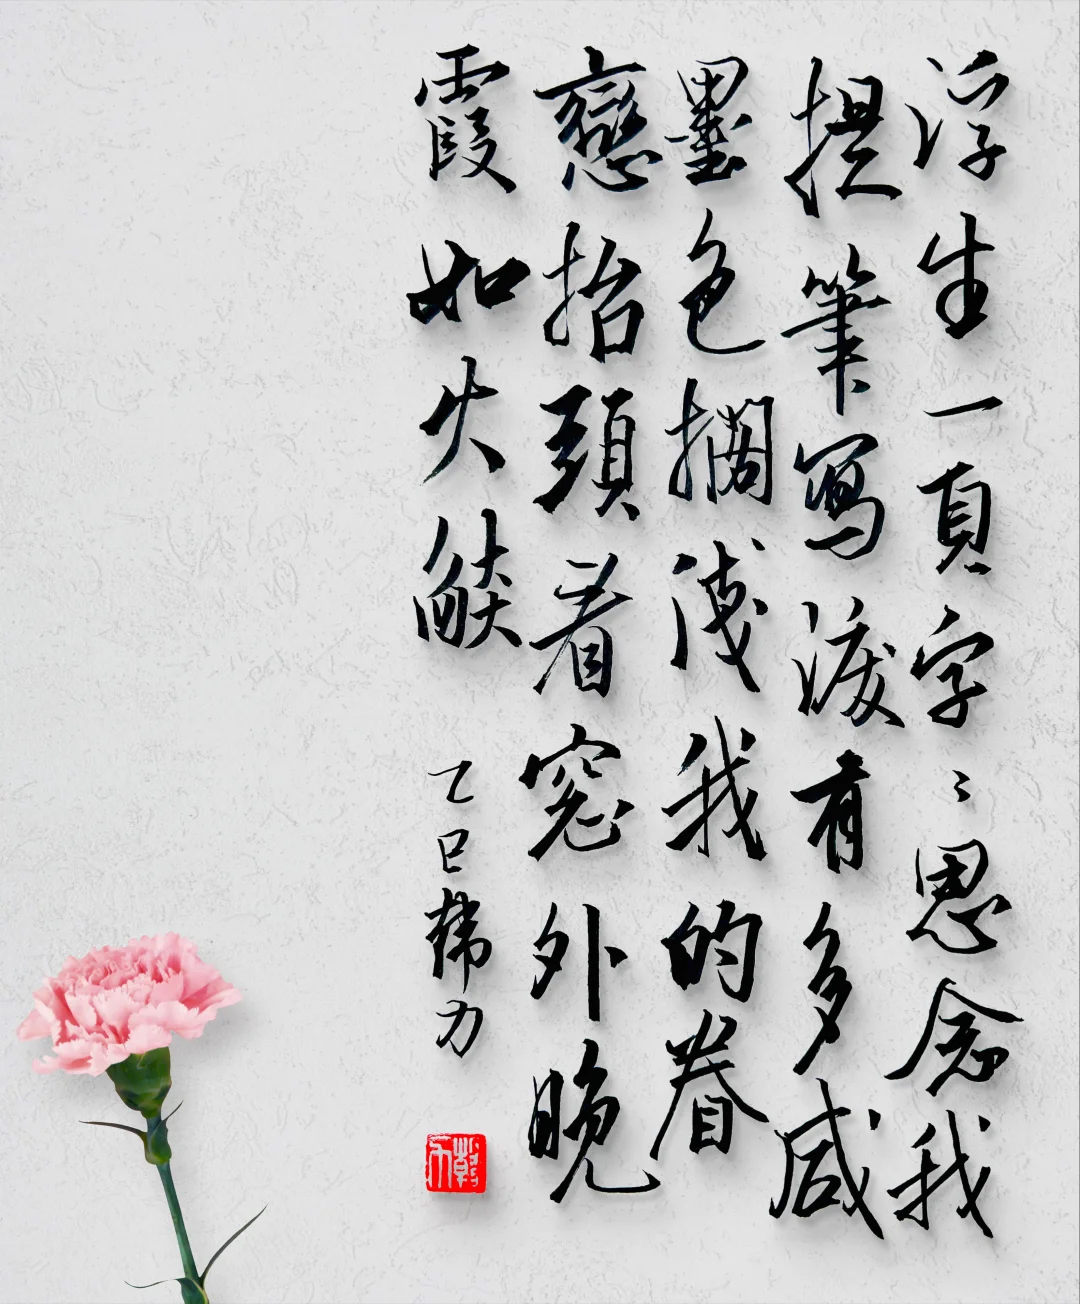 浮生一頁字〻思念我
提筆寫没有多感
墨色擱淺我的眷
戀抬頭看窓外晚
霞如火燄
乙巳韩力